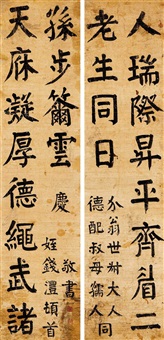 人瑞際昇平齊眉二
老生同日
介翁世叔大人
德配叔母孺人同
慶
天庥凝厚德繩武諸
孫步籋雲
姪錢灃頓首
敬書